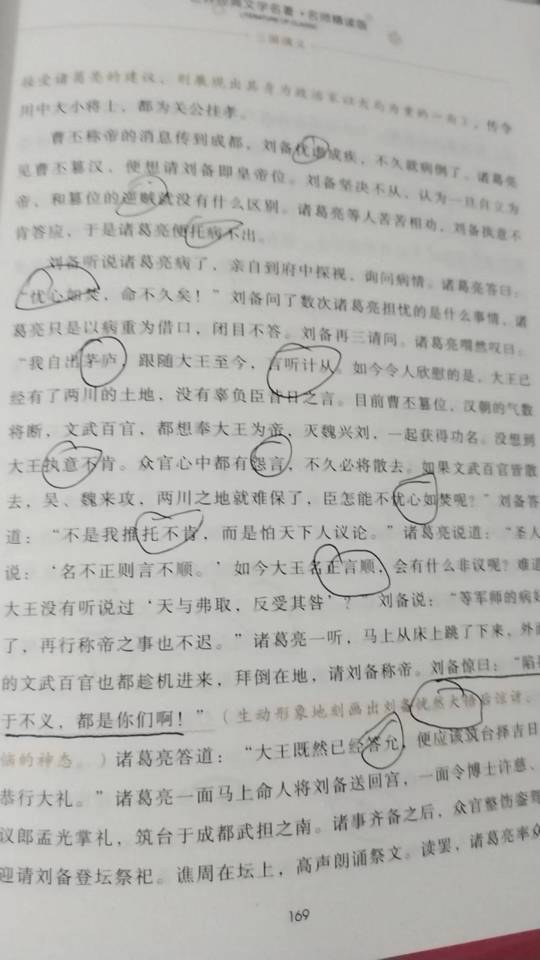 世界经典文学名著·名师精读版
LITERATURE OF CLASSIC
三国演义
接受诸葛亮的建议,则展现出其身为政治家以大局为重的一面),传令
川中大小将士,都为关公挂孝。
曹丕称帝的消息传到成都,刘备忧虑成疾,不久就病倒了。诸葛亮
见曹丕篡汉,便想请刘备即皇帝位。刘备坚决不从,认为一旦自立为
帝,和篡位的逆贼就没有什么区别。诸葛亮等人苦苦相劝,刘备执意不
肯答应,于是诸葛亮便托病不出。
刘备听说诸葛亮病了,亲自到府中探视,询问病情。诸葛亮答曰:
“忧心如焚,命不久矣!”刘备问了数次诸葛亮担忧的是什么事情,诸
葛亮只是以病重为借口,闭目不答。刘备再三请问。诸葛亮喟然叹曰:
“我自出茅庐,跟随大王至今,言听计从。如今令人欣慰的是,大王已
经有了两川的土地,没有辜负臣昔日之言。目前曹丕篡位,汉朝的气数
将断,文武百官,都想奉大王为帝,灭魏兴刘,一起获得功名。没想到
大王执意不肯。众官心中都有怨言,不久必将散去。如果文武百官皆散
去,吴、魏来攻,两川之地就难保了,臣怎能不忧心如焚呢?”刘备答
道:“不是我推托不肯,而是怕天下人议论。”诸葛亮说道:“圣人
说:‘名不正则言不顺。’如今大王名正言顺,会有什么非议呢?难道
大王没有听说过‘天与弗取,反受其咎’?”刘备说:“等军师的病好
了,再行称帝之事也不迟。”诸葛亮一听,马上从床上跳了下来,外面
的文武百官也都趁机进来,拜倒在地,请刘备称帝。刘备惊曰:“陷孤
于不义,都是你们啊!”(生动形象地刻画出刘备恍然大悟后惊讶、
恼的神态。)诸葛亮答道:“大王既然已经答允,便应该筑台择吉日
恭行大礼。”诸葛亮一面马上命人将刘备送回宫,一面令博士许慈、
议郎孟光掌礼,筑台于成都武担之南。诸事齐备之后,众官整饬銮驾
迎请刘备登坛祭祀。谯周在坛上,高声朗诵祭文。读罢,诸葛亮率众
169